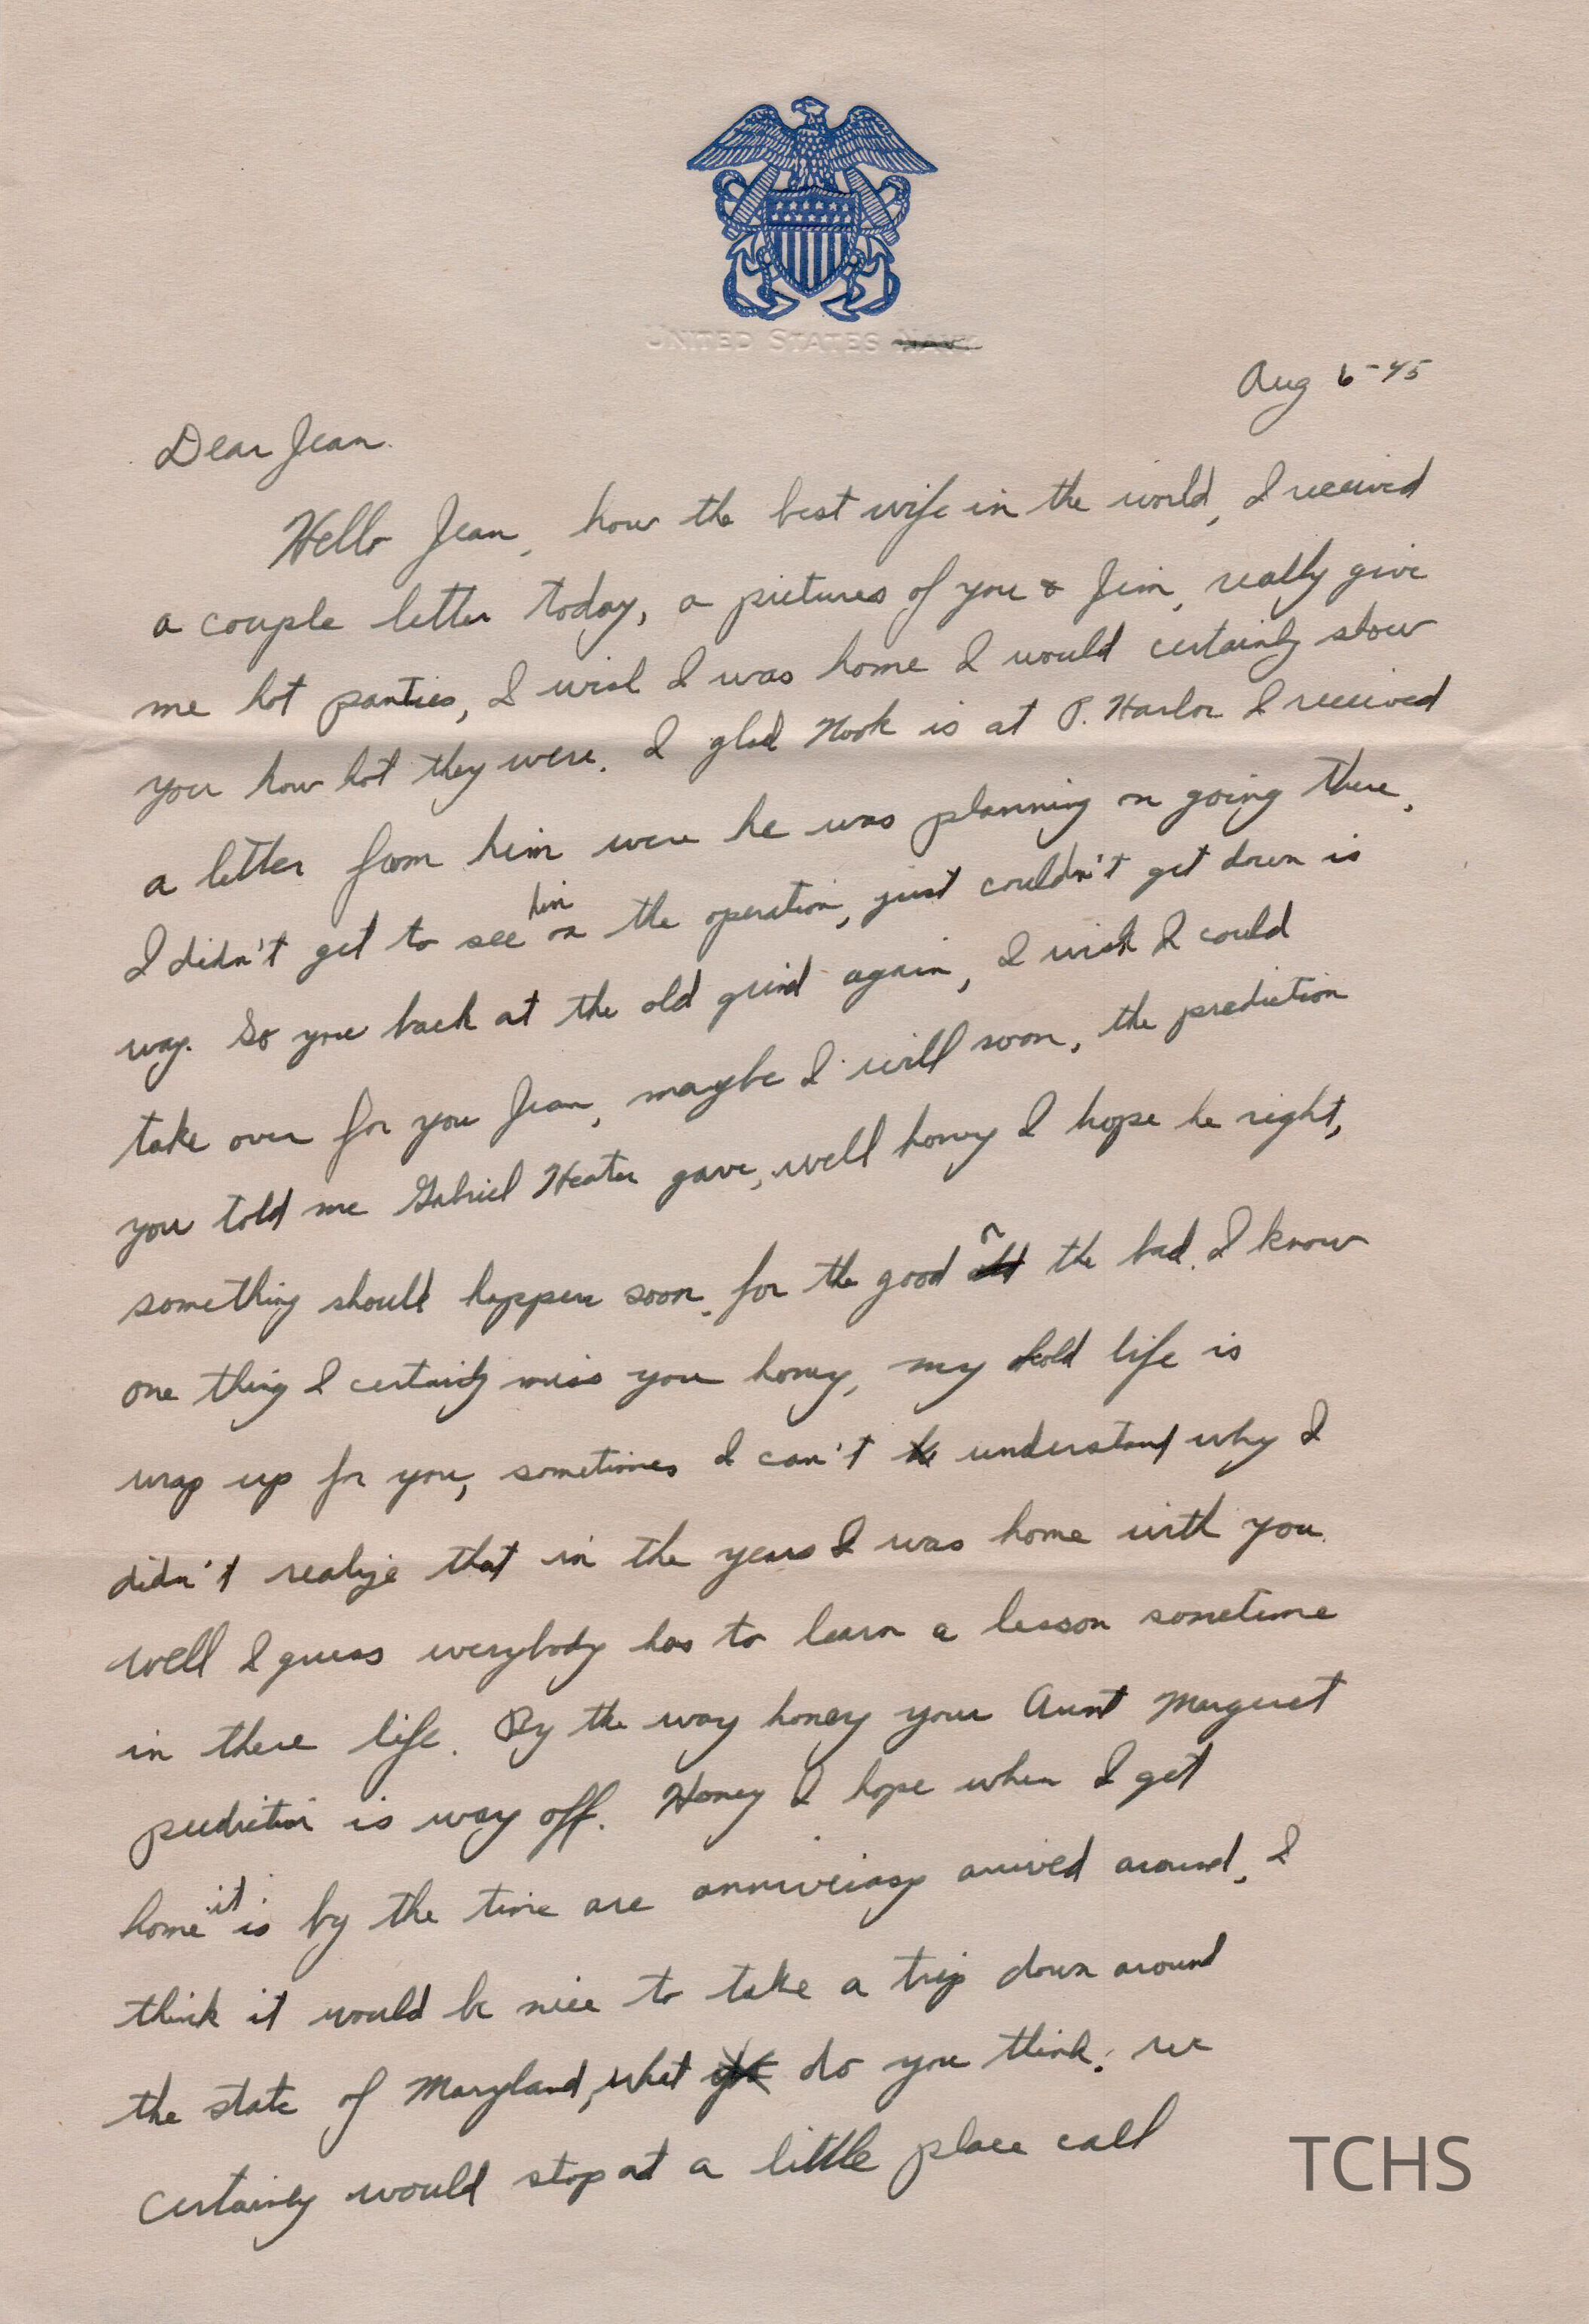 UNITED STATES NAVY
Aug 6-45
Dear Jean.
Hello Jean, how the best wife in the world, I received
a couple letter today, a pictures of you & Jim, really give
me hot panties, I wish I was home I would certainly show
you how hot they were. I glad Nook is at P. Harbor I received
a letter from him were he was planning on going there.
I didn't get to see him on the operation, just couldn't get down is
way. So you back at the old grind again, I wish I could
take over for you Jean, maybe I will soon, the prediction
you told me Gabriel Heater gave, well honey I hope he right,
something should happen soon. for the good or the bad. I know
one thing I certainly miss you honey, my hold life is
wrap up for you, sometimes I can't understand why I
didn't realize that in the years I was home with you.
well I guess everybody has to learn a lesson sometime
in there life. By the way honey your Aunt Margaret
prediction is way off. Honey I hope when I get
home it is by the time are anniversay arrived around, I
think it would be nice to take a trip down around
the state of Maryland, what do you think. we
certainly would stop at a little place call
TCHS